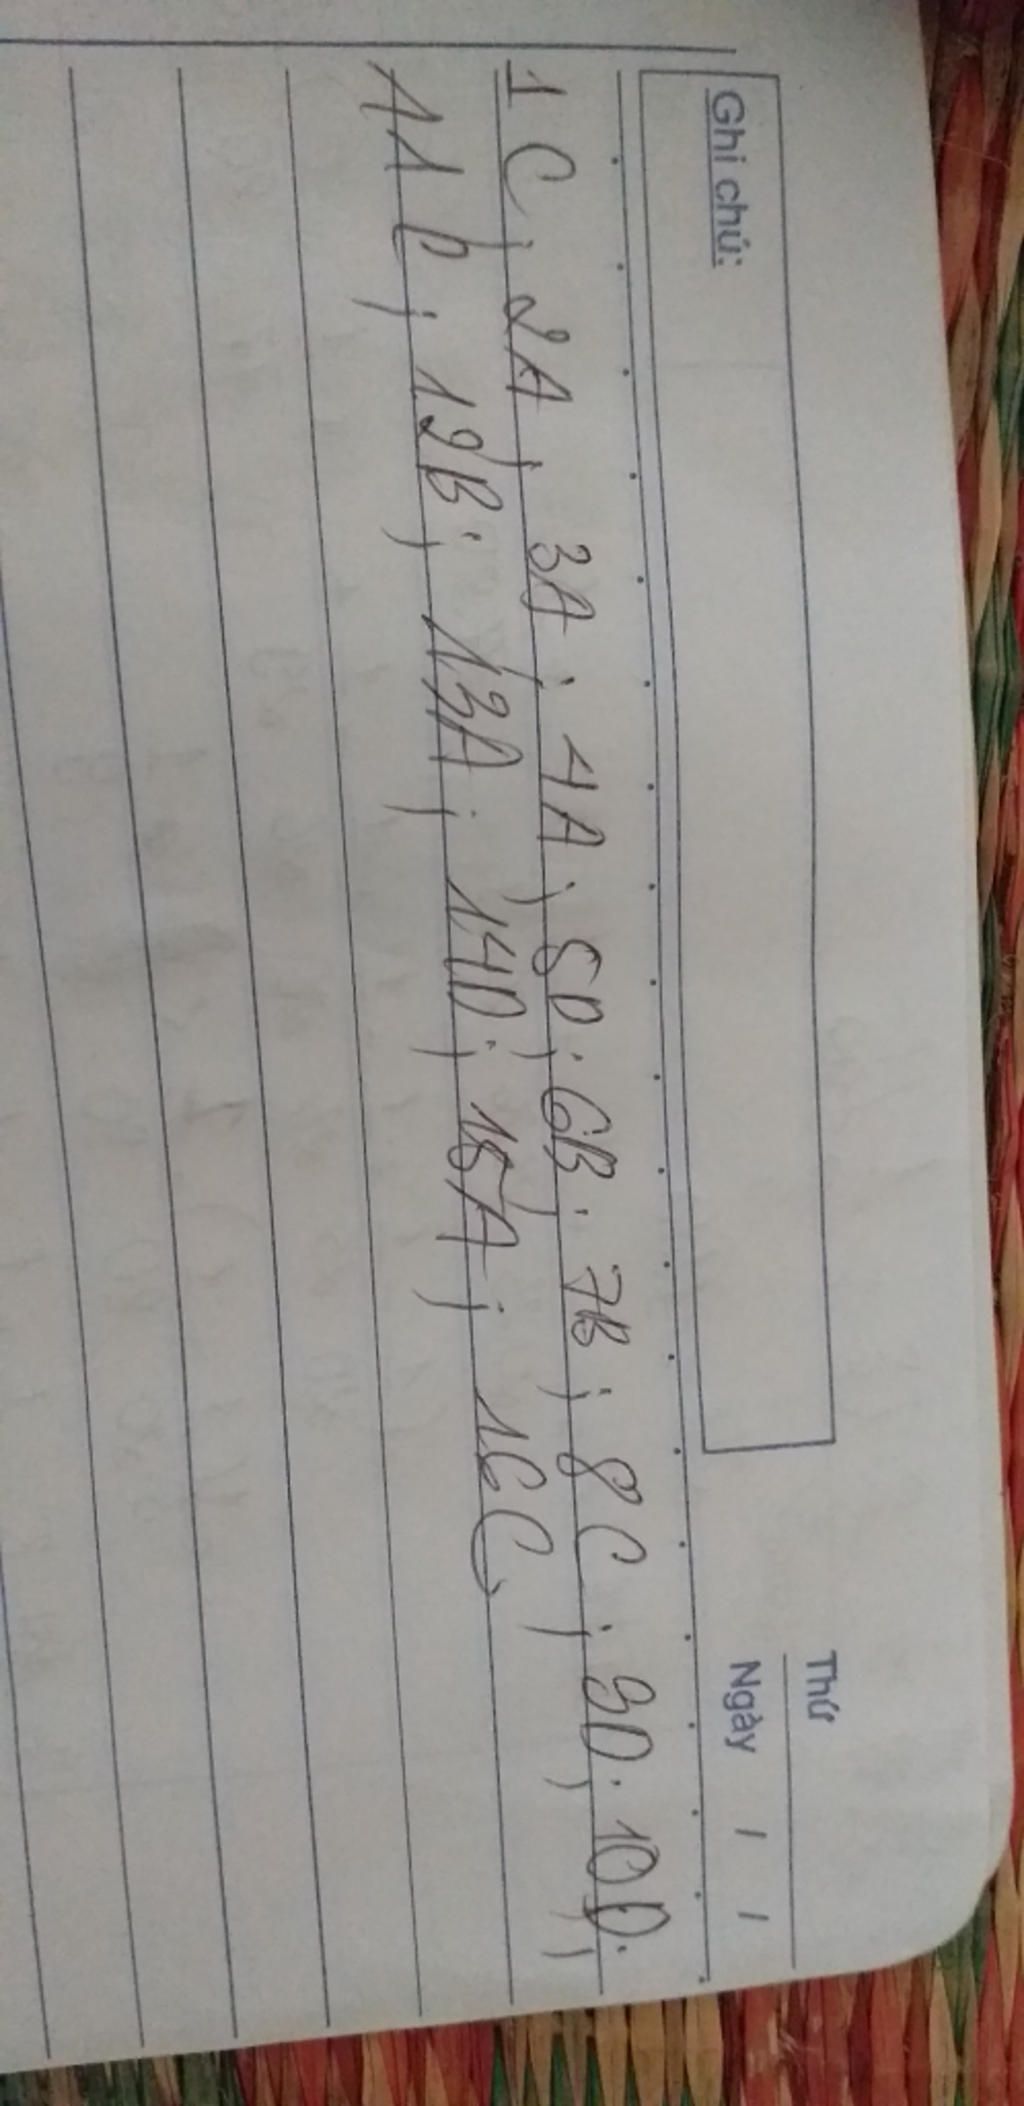 Ghi chú:
Thứ
Ngày / /
1C; 2A; 3A; 4A; 5D; 6B; 7B; 8C; 9D; 10D;
11D; 12B; 13A; 14D; 15A; 16C